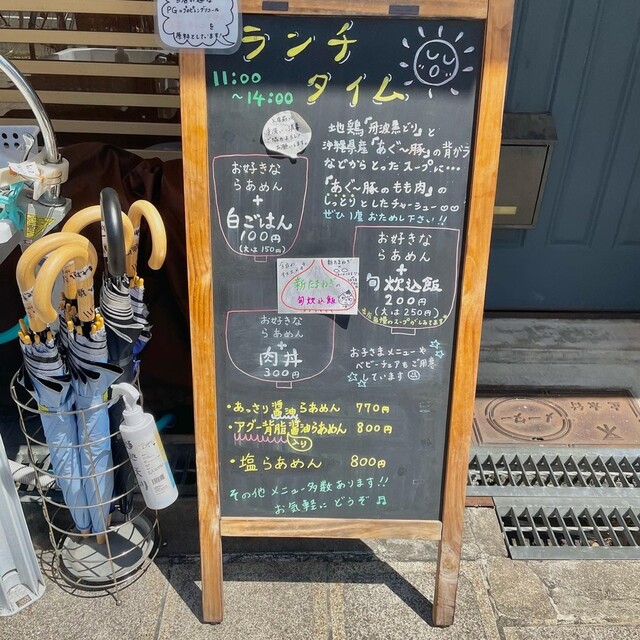 を
ランチ
タイム
11:00
~14:00
地鶏『丹波黒どり』と
沖縄県産『あぐ〜豚』の背ガラ
などからとったスープに…
『あぐ〜豚のもも肉』の
しっとりとしたチャーシュー♡♡
ぜひ1度おためし下さい!!
お好きな
らあめん
+
白ごはん
100円
(大は150円)
お好きな
らあめん
+
旬炊込飯
200円
(大は250円)
新たまねぎの
旬炊込飯
お好きな
らあめん
+
肉丼
300円
お子さまメニューや
ベビーチェアもご用意
しています
・あっさり醤油らあめん 770円
・アグー背脂醤油らあめん 800円
・塩らあめん 800円
その他メニュー多数あります!!
お気軽にどうぞ♬